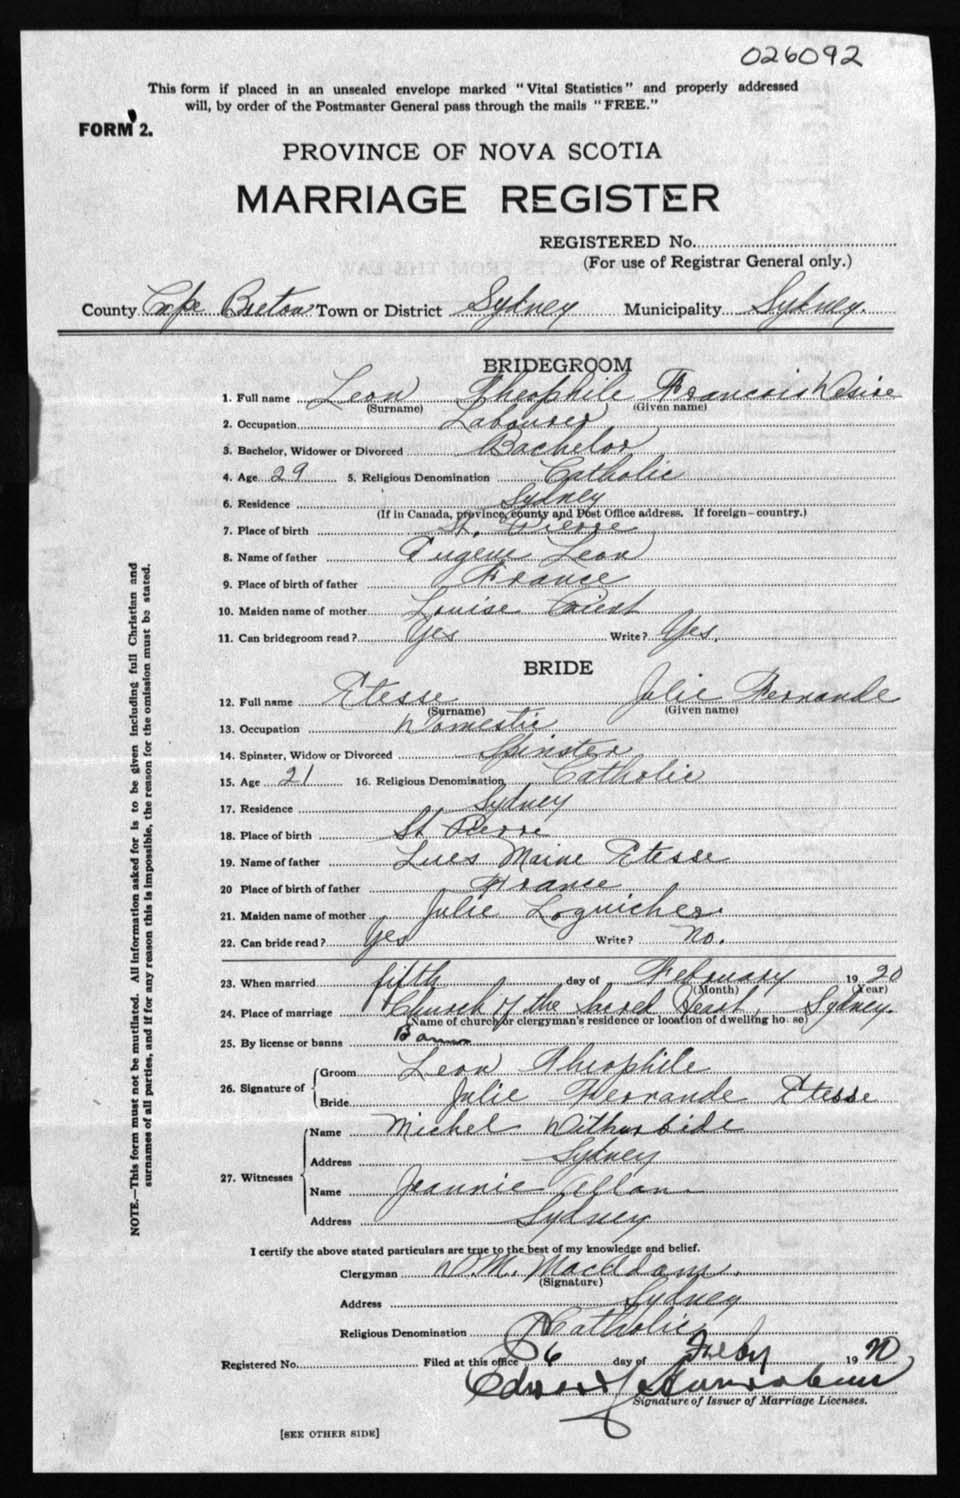 026092
This form if placed in an unsealed envelope marked "Vital Statistics" and properly addressed
will, by order of the Postmaster General pass through the mails "FREE."
FORM 2.
PROVINCE OF NOVA SCOTIA
MARRIAGE REGISTER
REGISTERED No.
(For use of Registrar General only.)
County Cape Breton Town or District Sydney Municipality Sydney.
BRIDEGROOM
1. Full name Leon Theophile Francois Desire
(Surname) (Given name)
2. Occupation Labourer
3. Bachelor, Widower or Divorced Bachelor
4. Age 29 5. Religious Denomination Catholic
6. Residence Sydney
(If in Canada, province, county and Post Office address. If foreign-country.)
7. Place of birth St. Pierre
8. Name of father Eugene Leon
9. Place of birth of father France
10. Maiden name of mother Louise
11. Can bridegroom read? Yes Write? Yes.
BRIDE
12. Full name Etesse Julie Fernande
(Surname) (Given name)
13. Occupation Domestic
14. Spinster, Widow or Divorced Spinster
15. Age 21 16. Religious Denomination Catholic
17. Residence Sydney
18. Place of birth St Pierre
19. Name of father Lues Maine Etesse
20 Place of birth of father France
21. Maiden name of mother Julie Loguicher
22. Can bride read? Yes Write? No.
23. When married fifth day of February 1920
(Month) (Year)
24. Place of marriage Church of the Sacred Heart, Sydney.
(Name of church or clergyman's residence or location of dwelling house)
25. By license or banns Banns
26. Signature of Groom Leon Theophile
Bride Julie Fernande Etesse
27. Witnesses Name Michel
Address Sydney
Name Jeannie Allan
Address Sydney
I certify the above stated particulars are true to the best of my knowledge and belief.
Clergyman D. M. MacAdam.
(Signature)
Address Sydney
Religious Denomination Catholic
Registered No. Filed at this office 6 day of Feby 1920
Signature of Issuer of Marriage Licenses.
[SEE OTHER SIDE]
NOTE.—This form must not be mutilated. All information asked for is to be given including full Christian and
surnames of all parties, and if for any reason this is impossible, the reason for the omission must be stated.